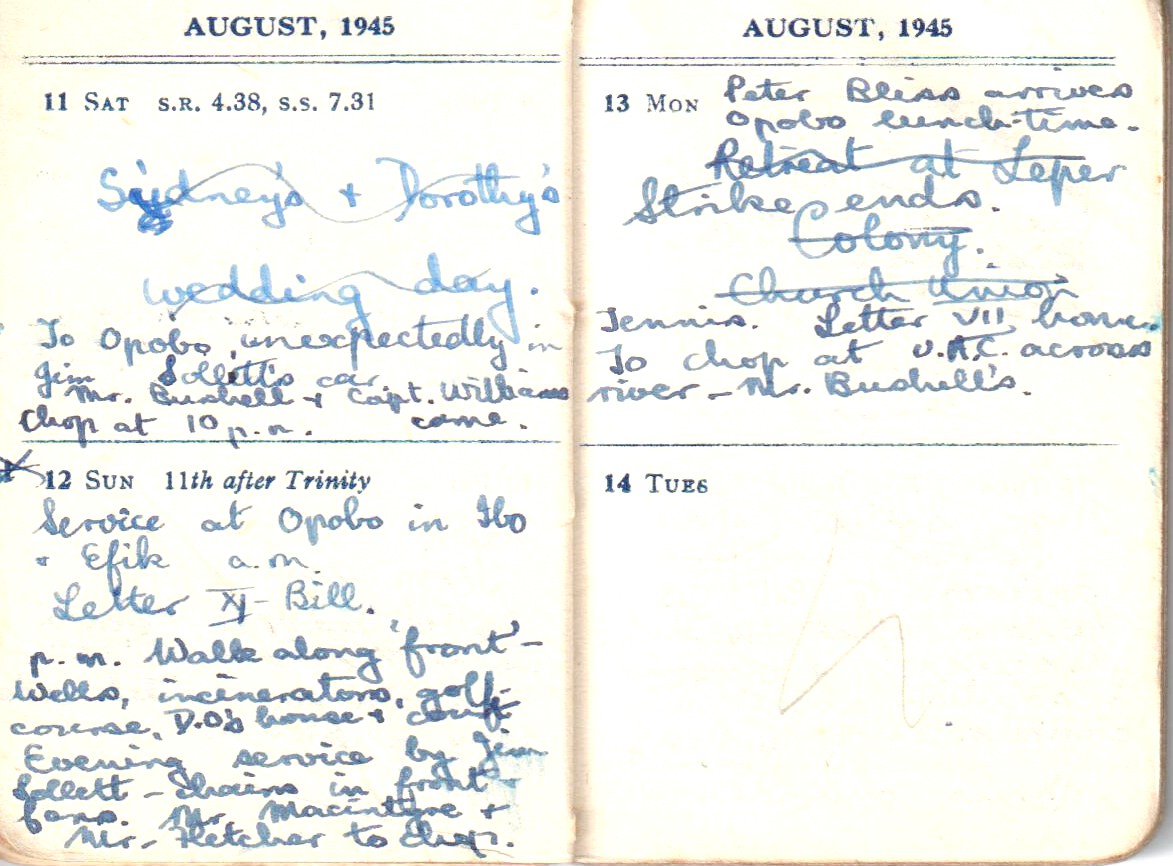 AUGUST, 1945
11 SAT S.R. 4.38, S.S. 7.31
Sydney's + Dorothy's
wedding day.
To Opobo unexpectedly in
Jim Sollett's car.
Mr. Bushell + Capt. Williams
Chop at 10 p.m. came.
12 SUN 11th after Trinity
Service at Opobo in Ibo
+ Efik a.m.
Letter XI - Bill.
p.m. Walk along 'front' -
Wells, incinerators, golf-
course, D.O's house +
Evening service by Jim
Sollett - chairs in front +
Mr. Macintyre +
Mr. Fletcher to chop.
AUGUST, 1945
13 MON Peter Bliss arrives
Opobo lunch-time.
Retreat at Leper
Strike ends.
Colony.
Church Union
Tennis. Letter VII home.
To chop at U.A.C. across
river - Mr. Bushell's.
14 TUES